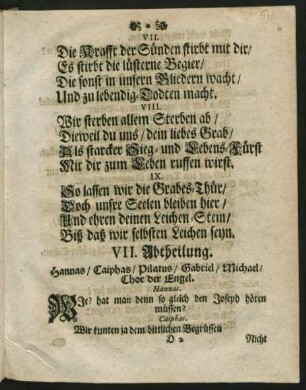 VII.
Die Krafft der Sünden stirbt mit dir/
Es stirbt die lüsterne Begier/
Die sonst in unsern Gliedern wacht/
Und zu lebendig-Todten macht.
VIII.
Wir sterben allem Sterben ab/
Dieweil du uns/ dein liebes Grab/
Als starcker Sieg- und Lebens-Fürst
Mit dir zum Leben ruffen wirst.
IX.
So lassen wir die Grabes-Thür/
Doch unsre Seelen bleiben hier/
Und ehren deinen Leichen-Stein/
Biß daß wir selbsten Leichen seyn.
VII. Abtheilung.
Hannas/ Caiphas/ Pilatus/ Gabriel/ Michael/
Chor der Engel.
Hannas.
WJe? hat man denn so gleich den Joseph hören
müssen?
Caiphas.
Wir kunten ja dem bittlichen Begrüssen
D 2 Nicht